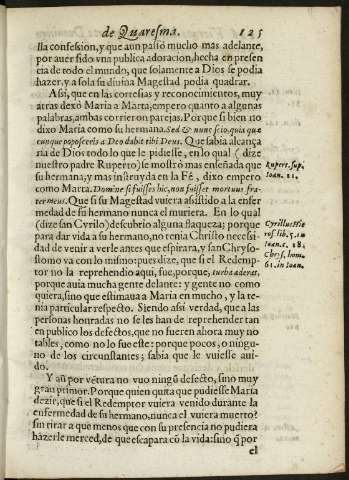 de Quaresma. 125
lla confession, y que aun passò mucho mas adelante,
por auer sido vna publica adoracion, hecha en presen
cia de todo el mundo, que solamente a Dios se podia
hazer, y a sola su diuina Magestad podia quadrar.
Assi, que en las cortesias y reconocimientos, muy
atras dexò Maria a Marta, empero quanto a algunas
palabras, ambas corrieron parejas. Porque si bien no
dixo Maria como su hermana. Sed & nunc scio, quia quæ
cunque poposceris a Deo dabit tibi Deus. Que sabia alcança
ria de Dios todo lo que le pidiesse, en lo qual ( dize
nuestro padre Ruperto) se mostrò mas enseñada que
su hermana, y mas instruyda en la Fè , dixo empero
como Marta. Domine si fuisses hic, non fuisset mortuus fra-
ter meus. Que si su Magestad vuiera assistido a la enfer
medad de su hermano nunca el muriera. En lo qual
(dize san Cyrilo) descubrio alguna flaqueza; porque
para dar vida a su hermano, no tenia Christo necessi-
dad de venir a verle antes que espirara, y san Chryso-
stomo va con lo mismo: pues dize, que si el Redemp-
tor no la reprehendio aqui, fue, porque, turba aderat,
porque auia mucha gente delante: y gente no como
quiera, sino que estimaua a Maria en mucho , y la te-
nia particular respecto. Siendo assi verdad, que a las
personas honradas no se les han de reprehender tan
en publico los defectos, que no sueren ahora muy no
tables, como no lo fue este: porque pocos, o ningu-
no de los circunstantes ; sabia que le vuiesse aui-
do.
Y aũ por vẽtura no vuo ningũ defecto, sino muy
gran primor. Porque quien quita que pudiesse Maria
dezir, que si el Redemptor viuiera venido durante la
enfermedad de su hermano, nunca el vuiera muerto?
sin tirar a que menos que con su presencia no pudiera
hazerle merced, de que escapara cõ la vida: sino q̃ por
el
Rupert. sup.
Ioan. 11.
Cyrillus Hie
ros lib. 7. in
Ioan. c. 18.
Chrys. hom.
61. in Ioan.